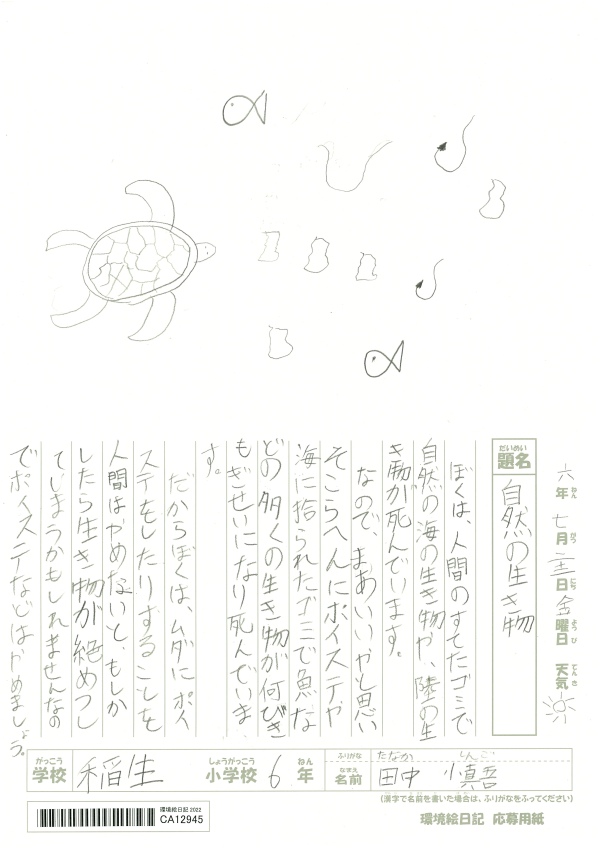 だいめい
題名
自然の生き物
六年七月二十二日金曜日 天気
ねん がつ にち ようび てんき
ぼくは、人間のすてたゴミで
自然の海の生き物や、陸の生
き物が死んでいます。
なので、まあいいやと思い
そこらへんにポイステや
海に捨られたゴミで魚な
どの多くの生き物が何びき
もぎせいになり死んでいま
す。
だからぼくは、ムダにポイ
ステをしたりすることを
人間はやめないと、もしか
したら生き物が絶めつし
てしまうかもしれませんなの
でポイステなどはやめましょう。
がっこう
学校 稲生
しょうがっこう ねん
小学校 6 年
ふりがな たなか しんご
なまえ
名前 田中 慎吾
(漢字で名前を書いた場合は、ふりがなをふってください)
環境絵日記 2022
CA12945
環境絵日記 応募用紙